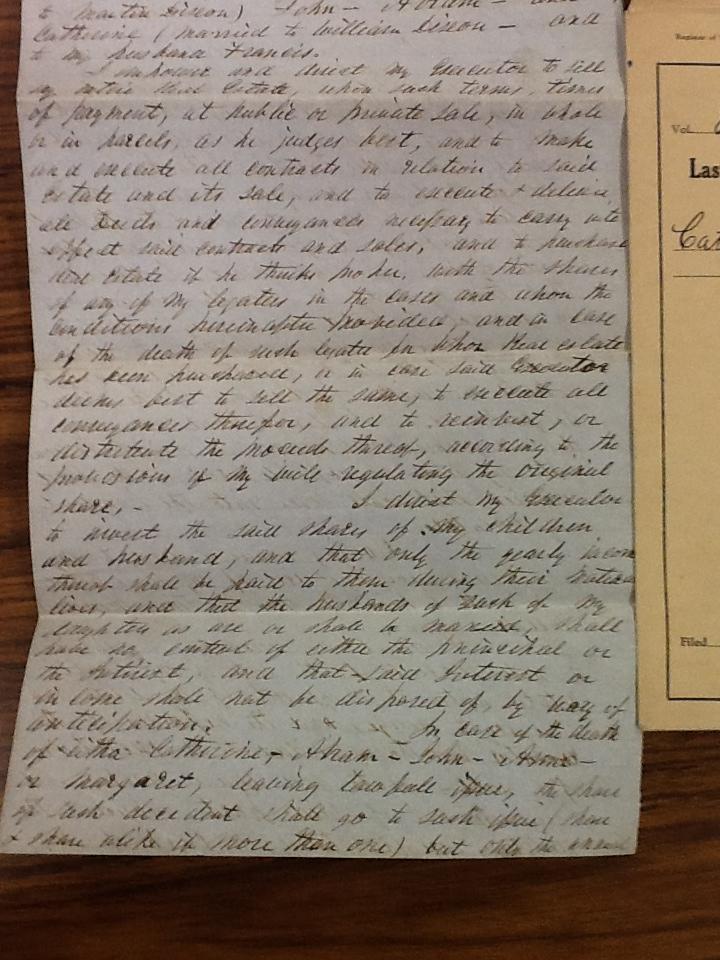 to Martin Dixon) John – Abram – and
Catherine (married to William Dixon – and
to my husband Francis.
I empower and direct my Executor to sell
my entire Real Estate, upon such terms, times
of payment, at public or private sale, in whole
or in parcels, as he judges best, and to make
and execute all contracts in relation to said
estate and its sale, and to execute + deliver
all Deeds and conveyances necessary to carry into
effect said contracts and sales, and to purchase
real estate if he thinks proper, with the shares
of any of my legatees in the cases and upon the
conditions hereinafter provided, and in case
of the death of such legatee for whom Real estate
has been purchased, or in case said Executor
deems best to sell the same, to execute all
conveyances therefor, and to reinvest, or
distribute the proceeds thereof, according to the
provisions of my will regulating the original
share. – I direct my Executor
to invest the said shares of my children
and husband, and that only the yearly income
thereof shall be paid to them during their natural
lives, and that the husbands of such of my
daughters as are or shall be married, shall
have no control of either the principal or
the Interest, and that said Interest or
income shall not be disposed of, by way of
anticipation. In case of the death
of either Catherine, Abram – John – Anne –
or Margaret, leaving lawful issue, the share
of such decedent shall go to such issue (share
+ share alike if more than one) but only the annual
Register of
Vol.
Las
Cat
Filed